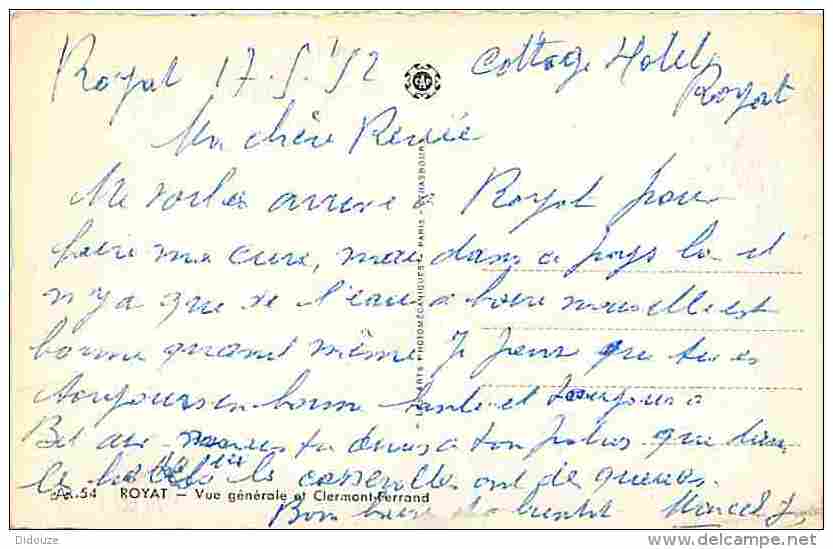 Royat 17.5.52
Cottage Hotel
Royat
Ma chère Renée
Me voilà arrivé à Royat pour
faire ma cure, mais dans ce pays là il
n'y a que de l'eau à boire mais elle est
bonne quand même Je pense que tu es
toujours en bonne santé et toujours à
Bel air
les casserolles ont des queues.
Bons baisers à bientôt Marcel
AR.54 ROYAT — Vue générale et Clermont-Ferrand
CAP
LES ARTS PHOTOMÉCANIQUES - PARIS - STRASBOURG
Didouze
DELCAMPE.NET